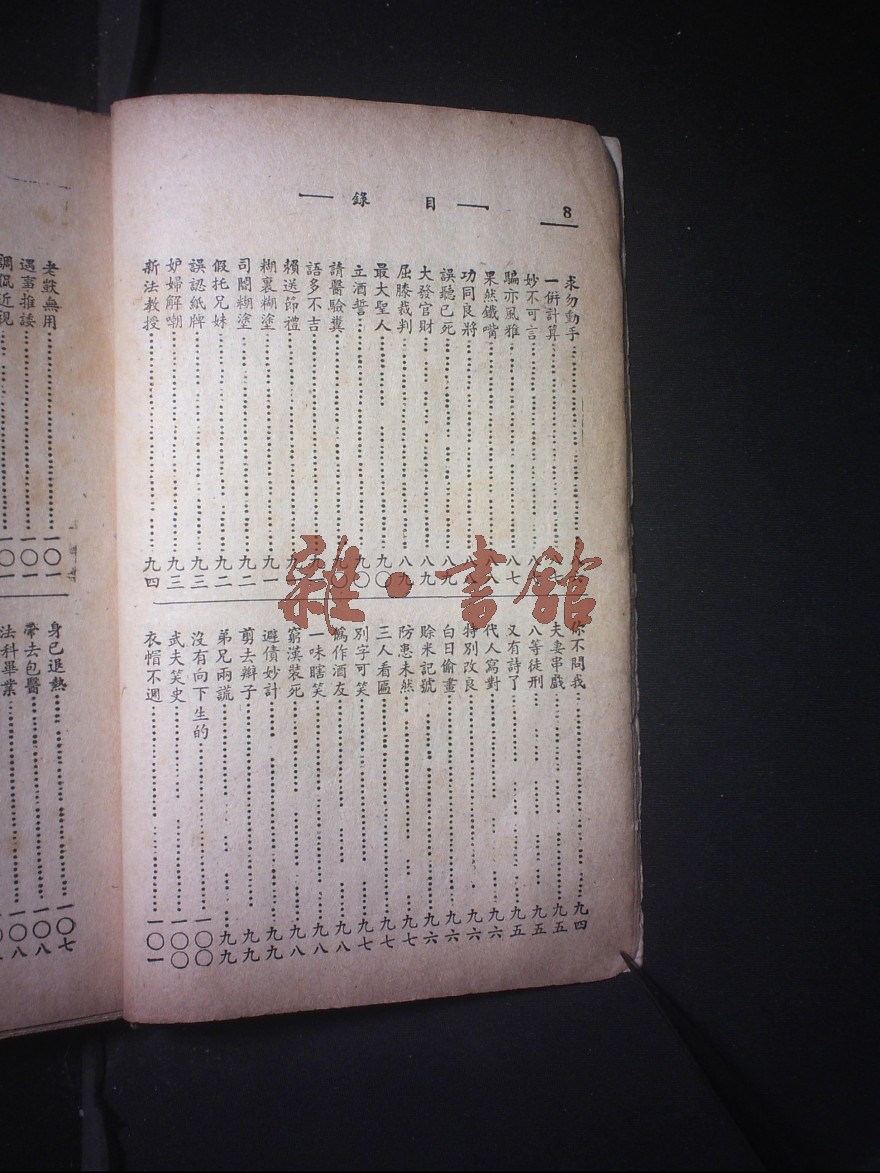 8
目錄
求勿動手
一併計算
妙不可言
騙亦風雅 八七
果然鐵嘴 八八
功同良將 八八
誤聽已死 八九
大發官財 八九
屈膝裁判 八九
最大聖人 九〇
立酒誓 九〇
請醫驗糞
語多不吉
賴送節禮
糊裏糊塗 九一
司閽糊塗 九二
假托兄妹 九二
誤認紙牌 九三
妒婦解嘲 九三
新法教授 九四
你不問我 九四
夫妻串戲 九五
八等徒刑 九五
又有詩了 九五
代人寫對 九六
特別改良 九六
白日偷畫 九六
賒米記號 九六
防患未然 九七
三人看匾 九七
別字可笑 九七
爲作酒友 九八
一味瞎笑 九八
窮漢裝死 九八
避債妙計 九九
剪去辮子 九九
弟兄兩謊 九九
沒有向下生的 一〇〇
武夫笑史 一〇〇
衣帽不週 一〇一
老獸無用 一〇一
遇事推諉 一〇一
調侃近視
身已退熱 一〇七
帶去包醫 一〇八
法科畢業
雜·書館